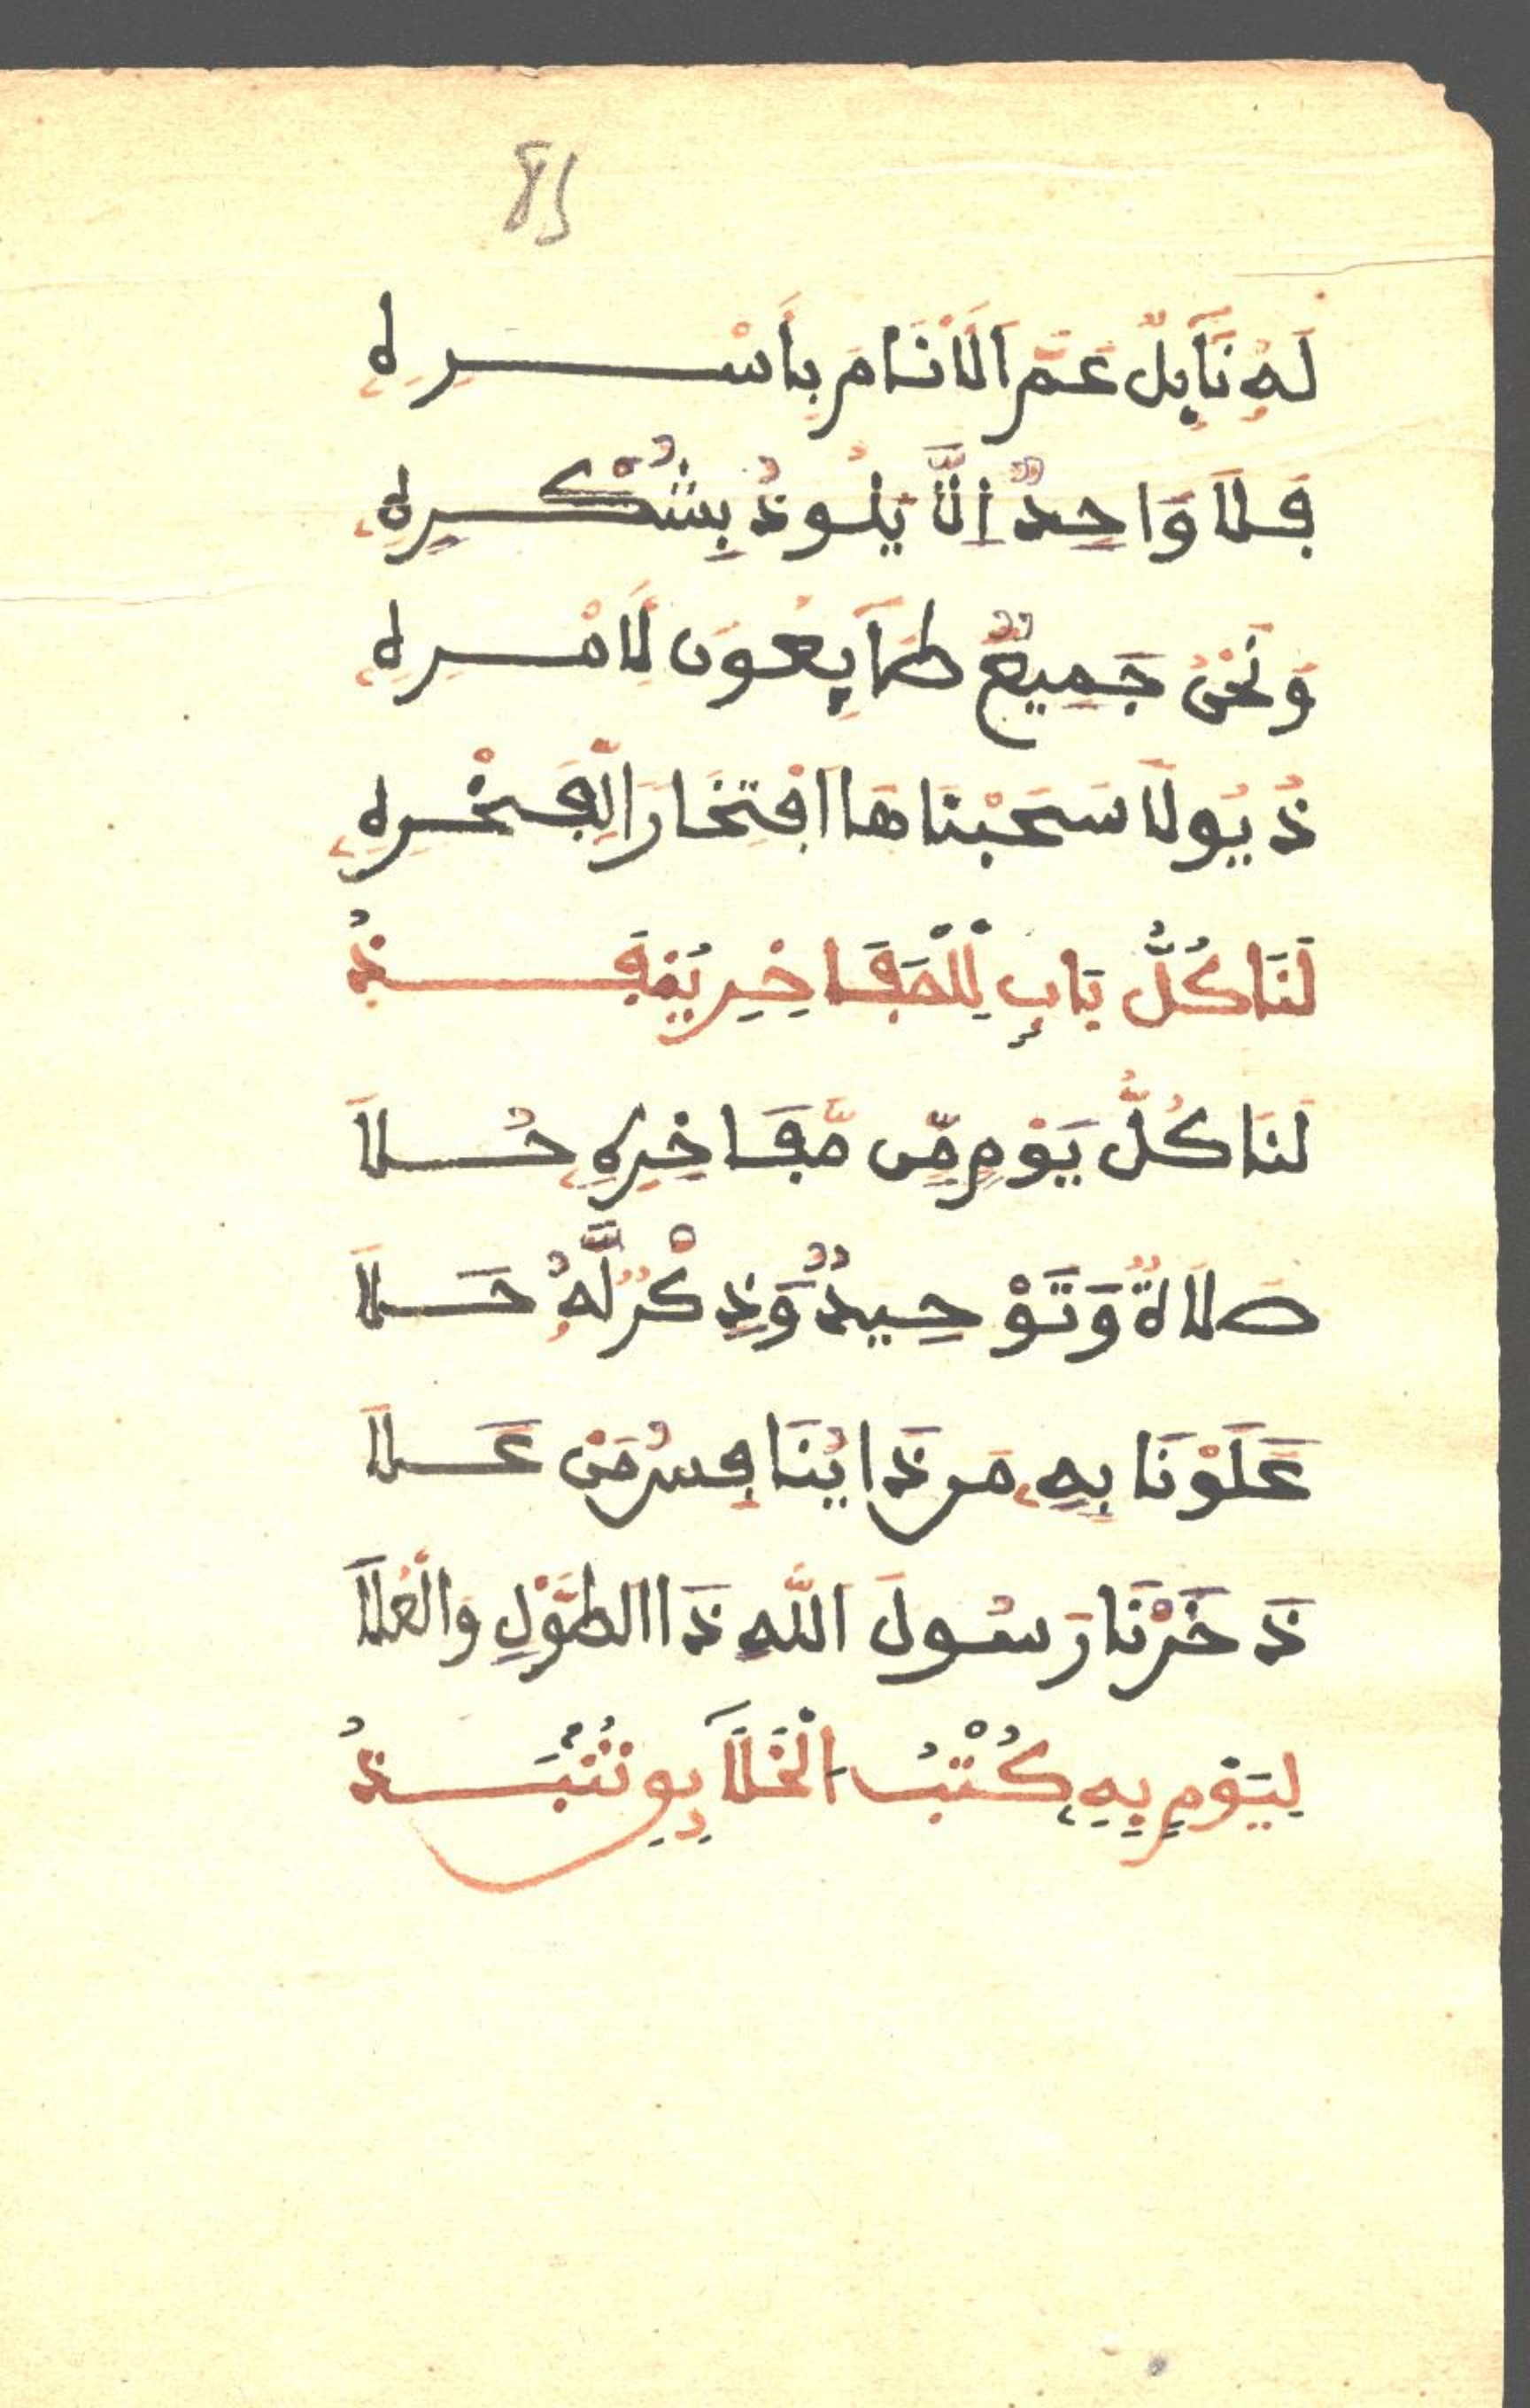 85
لَهُ نَآئِلٌ عَمَّ الَانَامَ بِأَسْرِهِ
فَلَا وَاحِدٌ اِلَّا يَلُوذُ بِشُكْرِهِ
وَنَحْنُ جَمِيعٌ طَآئِعُونَ لَامْرِهِ
ذُيُولَا سَحَبْنَاهَا افْتِخَارَا لِفَخْرِهِ
لَنَا كُلُّ بَابٍ لِلْمَفَاخِرِ يَنْفَذُ
لَنَا كُلُّ يَوْمٍ مِّن مَّفَاخِرِهِ حُلَا
صَلَاةٌ وَتَوْحِيدٌ وَّذِكْرٌ لَّهُ حَلَا
عَلَوْنَا بِهِ مَن ذَا يُنَافِسُ مَنْ عَلَا
ذَخَرْنَا رَسُولَ اللَّهِ ذَا الطَّوْلِ وَالْعُلَا
لِيَوْمٍ بِهِ كُتْبُ الْخَلَآئِقِ تُنْبَذُ